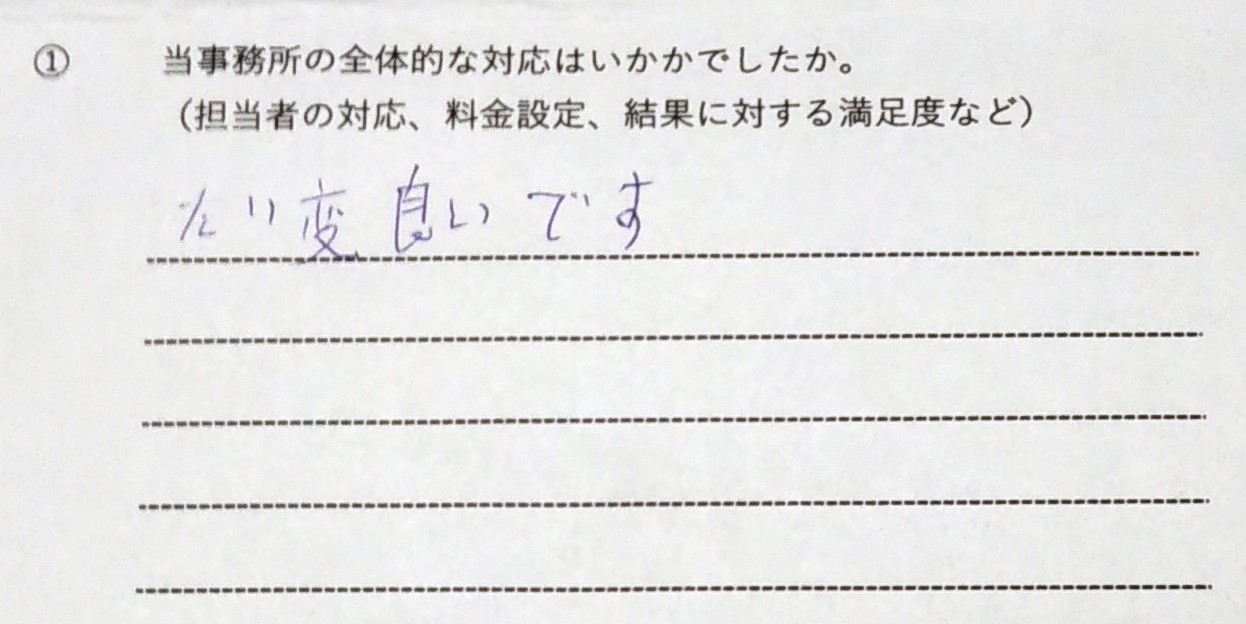 ① 当事務所の全体的な対応はいかかでしたか。
（担当者の対応、料金設定、結果に対する満足度など）
たい変良いです